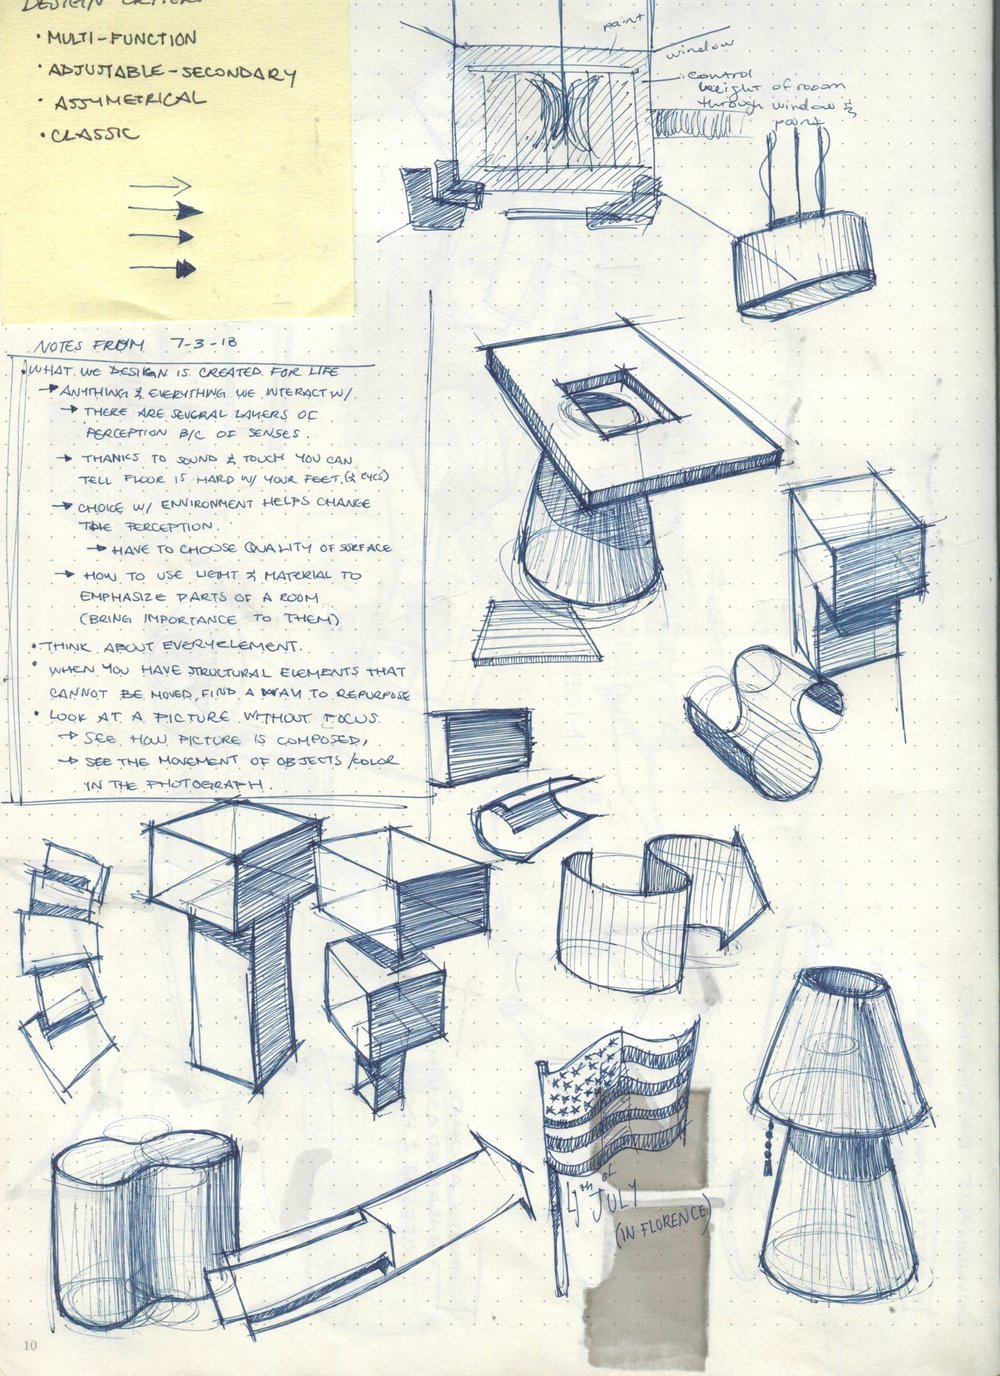 DESIGN CRITERIA
• MULTI-FUNCTION
• ADJUSTABLE-SECONDARY
• ASSYMETRICAL
• CLASSIC
paint
window
control
height of rooom
through window &
paint
NOTES FROM 7-3-18
• WHAT WE DESIGN IS CREATED FOR LIFE
→ ANYTHING & EVERYTHING WE INTERACT W/
→ THERE ARE SEVERAL LAYERS OF
PERCEPTION B/C OF SENSES.
→ THANKS TO SOUND & TOUCH YOU CAN
TELL FLOOR IS HARD W/ YOUR FEET. (& EYES)
→ CHOICE W/ ENVIRONMENT HELPS CHANGE
THE PERCEPTION.
→ HAVE TO CHOOSE QUALITY OF SURFACE
→ HOW TO USE LIGHT & MATERIAL TO
EMPHASIZE PARTS OF A ROOM
(BRING IMPORTANCE TO THEM)
• THINK ABOUT EVERY ELEMENT.
• WHEN YOU HAVE STRUCTURAL ELEMENTS THAT
CANNOT BE MOVED, FIND A WAY TO REPURPOSE
• LOOK AT A PICTURE WITHOUT FOCUS.
→ SEE HOW PICTURE IS COMPOSED,
→ SEE THE MOVEMENT OF OBJECTS/COLOR
IN THE PHOTOGRAPH.
4TH OF
JULY
(IN FLORENCE)
10